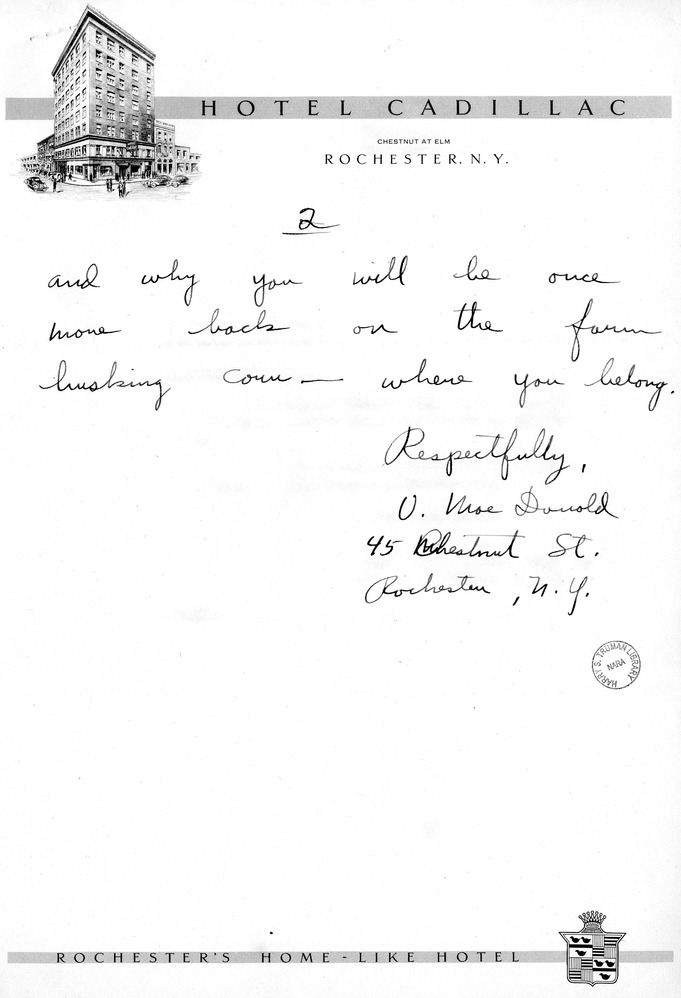 HOTEL CADILLAC
CHESTNUT AT ELM
ROCHESTER, N.Y.
2
and why you will be once
more back on the farm
husking corn — where you belong.
Respectfully,
V. Moe Donold
45 Chestnut St.
Rochester, N.Y.
HARRY S. TRUMAN LIBRARY
NARA
ROCHESTER'S HOME-LIKE HOTEL